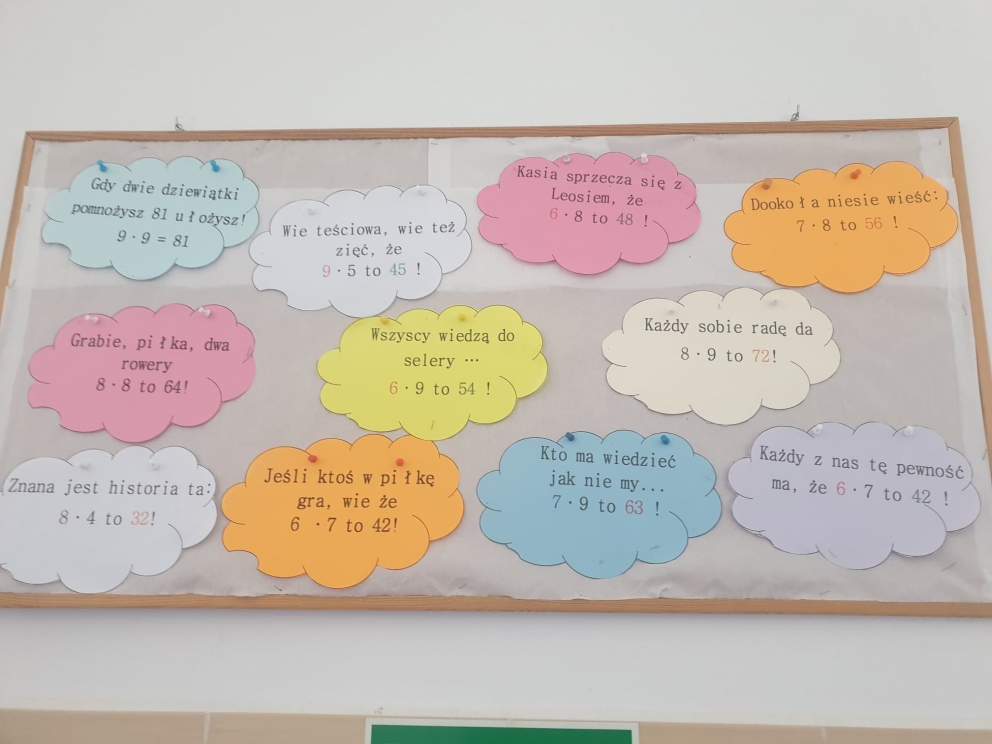 Gdy dwie dziewiątki
pomnożysz 81 ułożysz!
9 · 9 = 81
Wie teściowa, wie też
zięć, że
9 · 5 to 45 !
Kasia sprzecza się z
Leosiem, że
6 · 8 to 48 !
Dookoła niesie wieść:
7 · 8 to 56 !
Grabie, piłka, dwa
rowery
8 · 8 to 64!
Wszyscy wiedzą do
selery ...
6 · 9 to 54 !
Każdy sobie radę da
8 · 9 to 72!
Znana jest historia ta:
8 · 4 to 32!
Jeśli ktoś w piłkę
gra, wie że
6 · 7 to 42!
Kto ma wiedzieć
jak nie my...
7 · 9 to 63 !
Każdy z nas tę pewność
ma, że 6 · 7 to 42 !